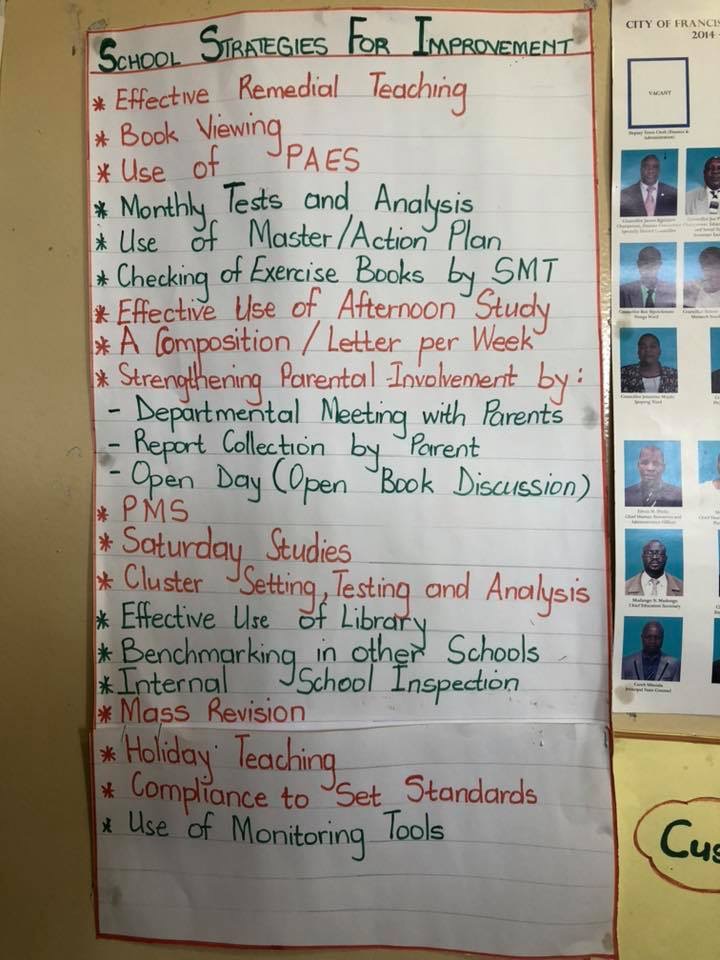 SCHOOL STRATEGIES FOR IMPROVEMENT
* Effective Remedial Teaching
* Book Viewing
* Use of PAES
* Monthly Tests and Analysis
* Use of Master/Action Plan
* Checking of Exercise Books by SMT
* Effective Use of Afternoon Study
* A Composition / Letter per Week
* Strengthening Parental Involvement by:
- Departmental Meeting with Parents
- Report Collection by Parent
- Open Day (Open Book Discussion)
* PMS
* Saturday Studies
* Cluster Setting, Testing and Analysis
* Effective Use of Library
* Benchmarking in other Schools
* Internal School Inspection
* Mass Revision
* Holiday Teaching
* Compliance to Set Standards
* Use of Monitoring Tools
CITY OF FRANCIS
2014 -
VACANT
Deputy Town Clerk (Finance &
Administration)
Chief Education Secretary
Principal State Counsel
Cus